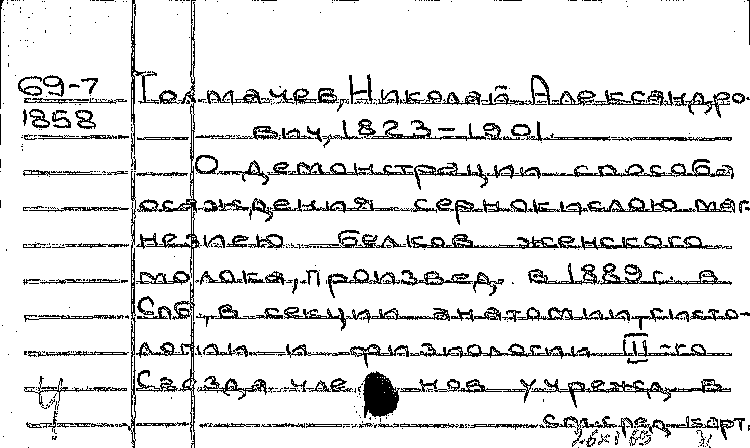 69-7 Толмачев, Николай Александро-
1858 вич, 1823-1901.
О демонстрации способа
осаждения сернокислою маг
незиею белков женского
молока, произвед. в 1889 г. в
Спб., в секции анатомии, гисто-
логии и физиологии III-го
Съезда членов учрежд. в
см. след. карт.